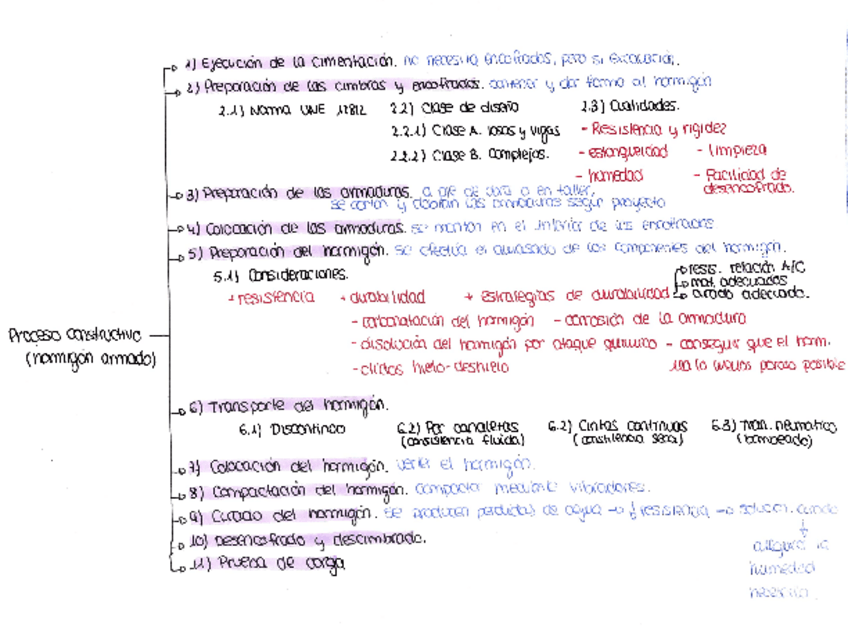 1) Ejecución de la cimentación. no necesita encofrados, pero si excavación.
2) Preparación de las cimbras y encofrados. contener y dar forma al hormigón
2.1) Norma UNE 12812 2.2) Clase de diseño 2.3) Cualidades.
2.2.1) Clase A. losas y vigas - Resistencia y rigidez
2.2.2) Clase B. Complejos. - estanqueidad - limpieza
- humedad - Facilidad de desencofrado.
3) Preparación de las armaduras. a pie de obra o en taller,
se cortan y doblan las armaduras según proyecto
4) Colocación de las armaduras. se montan en el interior de los encofrados.
5) Preparación del hormigón. se efectúa el amasado de los componentes del hormigón.
5.1) Consideraciones. resis. relación A/C
mat. adecuados
+ resistencia + durabilidad + estrategias de durabilidad curado adecuado.
- carbonatación del hormigón - corrosión de la armadura
- disolución del hormigón por ataque químico - conseguir que el horm.
- ciclos hielo-deshielo sea lo menos poroso posible
Proceso constructivo
(hormigón armado)
6) Transporte del hormigón.
6.1) Discontinuo 6.2) Por canaletas 6.2) Cintas continuas 6.3) Tran. neumático
(consistencia fluida) (consistencia seca) (bombeado)
7) Colocación del hormigón. verter el hormigón.
8) Compactación del hormigón. compactar mediante vibradores.
9) Curado del hormigón. se producen pérdidas de agua → ↓ resistencia → solución. curado
↓
10) Desencofrado y descimbrado.
asegura la
11) Prueba de carga
humedad
necesaria.